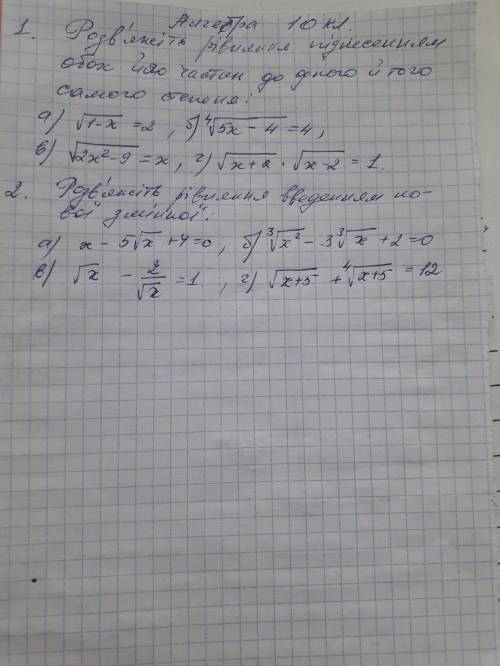 Алгебра 10 кл.
1. Розв'яжіть рівняння піднесенням
обох його частин до одного й того
самого степеня:
а) √(1-x) = 2, б) ⁴√(5x-4) = 4;
в) √(2x²-9) = x, г) √(x+2) · √(x-2) = 1.
2. Розв'яжіть рівняння введенням но-
вої змінної:
а) x - 5√x + 4 = 0, б) ³√x² - 3 ³√x + 2 = 0
в) √x - 2/√x = 1, г) √(x+5) + ⁴√(x+5) = 12